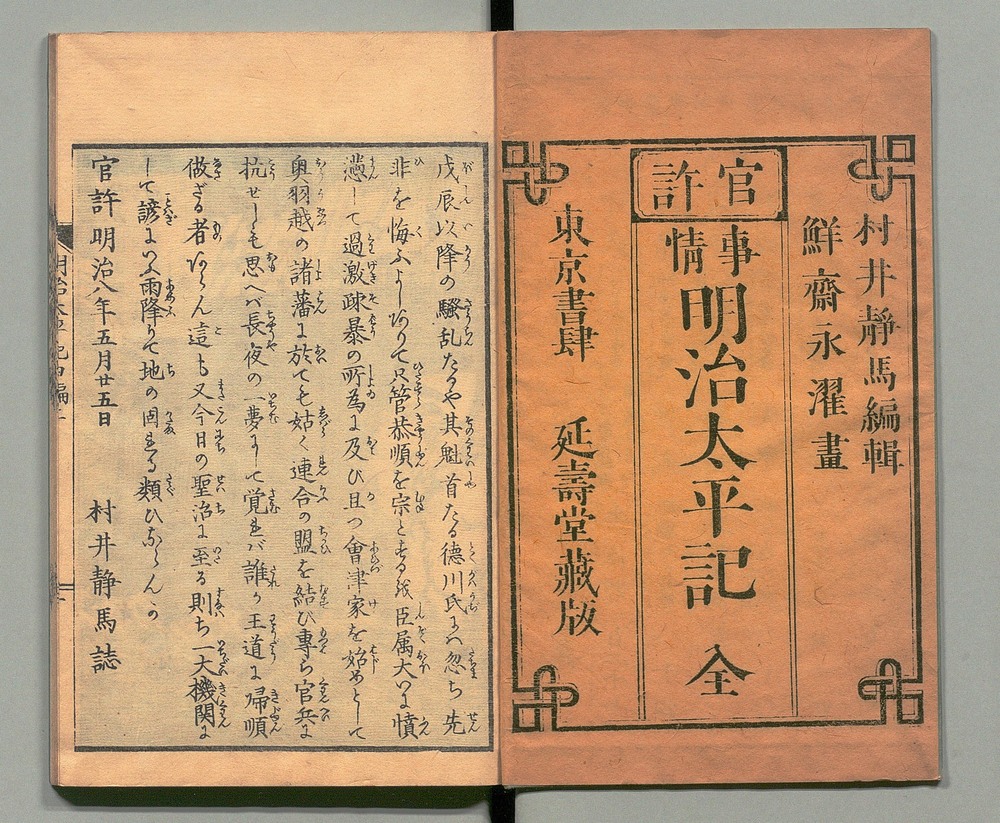 村井靜馬編輯
鮮齋永濯畫
官許
事情
明治太平記 全
東京書肆 延壽堂藏版
戊辰以降の騒乱たるや其魁首たる徳川氏は忽ち先
非を悔ふよしありて只管恭順を宗とする或臣属大いに憤
懣して過激疎暴の所為に及び且つ會津家を始めとして
奥羽越の諸藩に於ても姑く連合の盟を結び專ら官兵に
抗せしも思へバ長夜の一夢にて覚れバ誰か王道に帰順
做ざる者あらん這も又今日の聖治に至る則ち一大機関に
して諺にいふ雨降りて地の固まる類ひならんか
官許明治八年五月廿五日 村井静馬誌
明治太平記